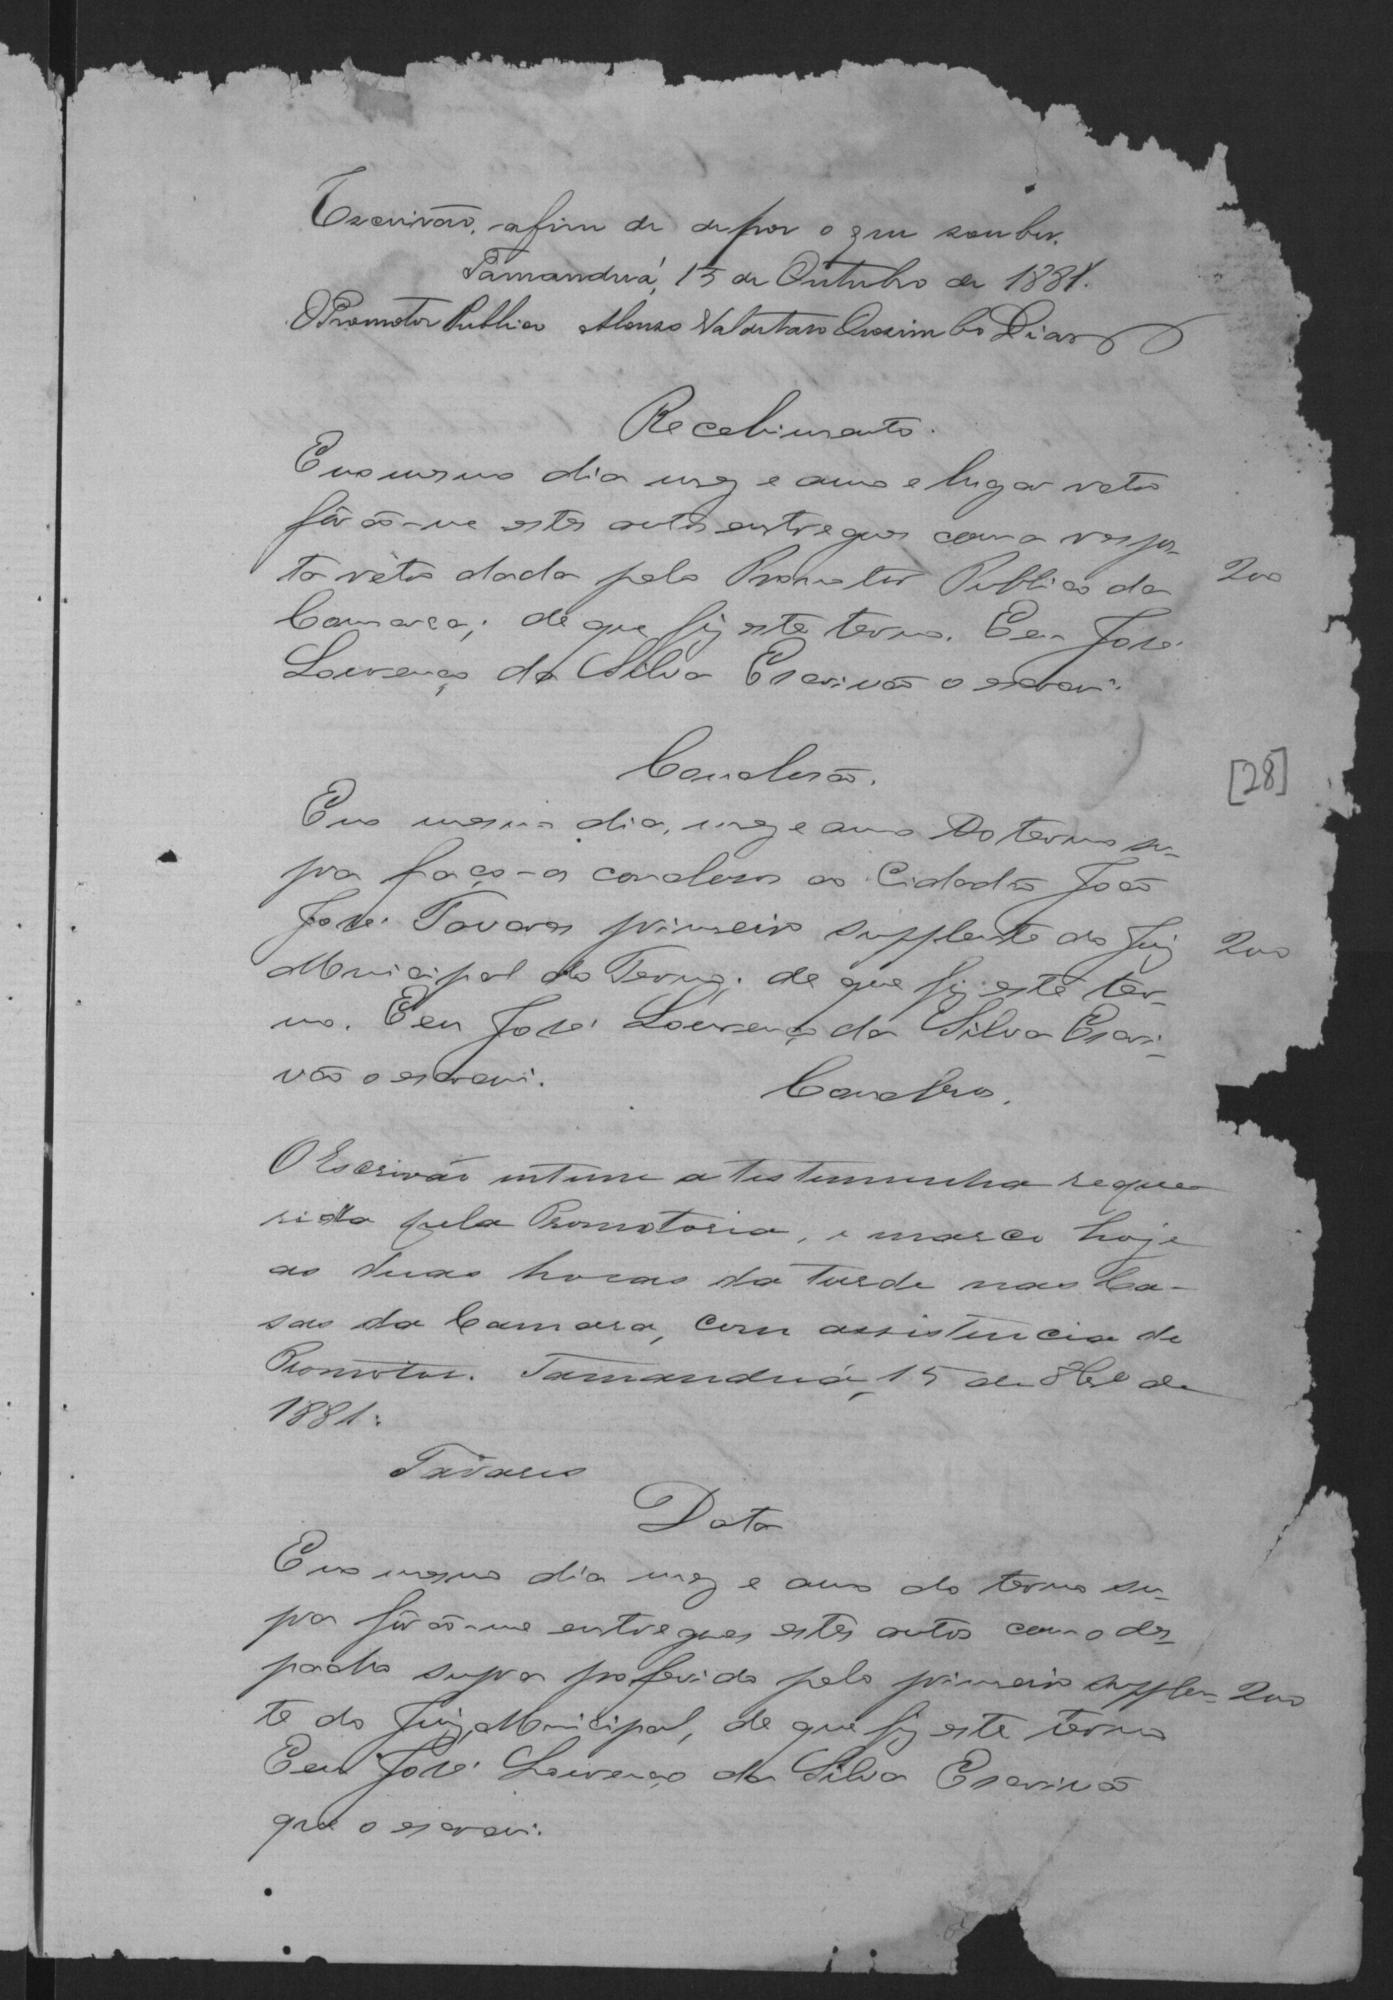 Escrivão, afim de depor o que souber.
Tamanduá, 15 de Outubro de 1881.
O Promotor Publico Dias
Recebimento.
Em o mesmo dia mez e anno e lugar retro
forão-me estes autos entregues com a respos-
ta retro dada pelo Promotor Publico da
Comarca; de que fiz este termo. E eu José
Lourenço da Silva Escrivão o escrevi.
200
Conclusão.
[28]
Em o mesmo dia, mez e anno do termo su-
pra faço-os conclusos ao Cidadão João
José Tavares primeiro supplente do Juiz
Municipal do Termo; de que fiz este ter-
mo. E eu José Lourenço da Silva Escri-
vão o escrevi.
200
Conclusos.
O Escrivão intime a testemunha reque
rida pela Promotoria, e marco hoje
as duas horas da tarde nas Ca-
sas da Camara, com assistencia do
Promotor. Tamanduá, 15 de 8bro de
1881.
Tavares
Data
Em o mesmo dia mez e anno do termo su-
pra forão-me entregues estes autos com o des-
pacho supra proferido pelo primeiro supplen- 200
te do Juiz Municipal, de que fiz este termo
E eu José Lourenço da Silva Escrivão
que o escrevi.